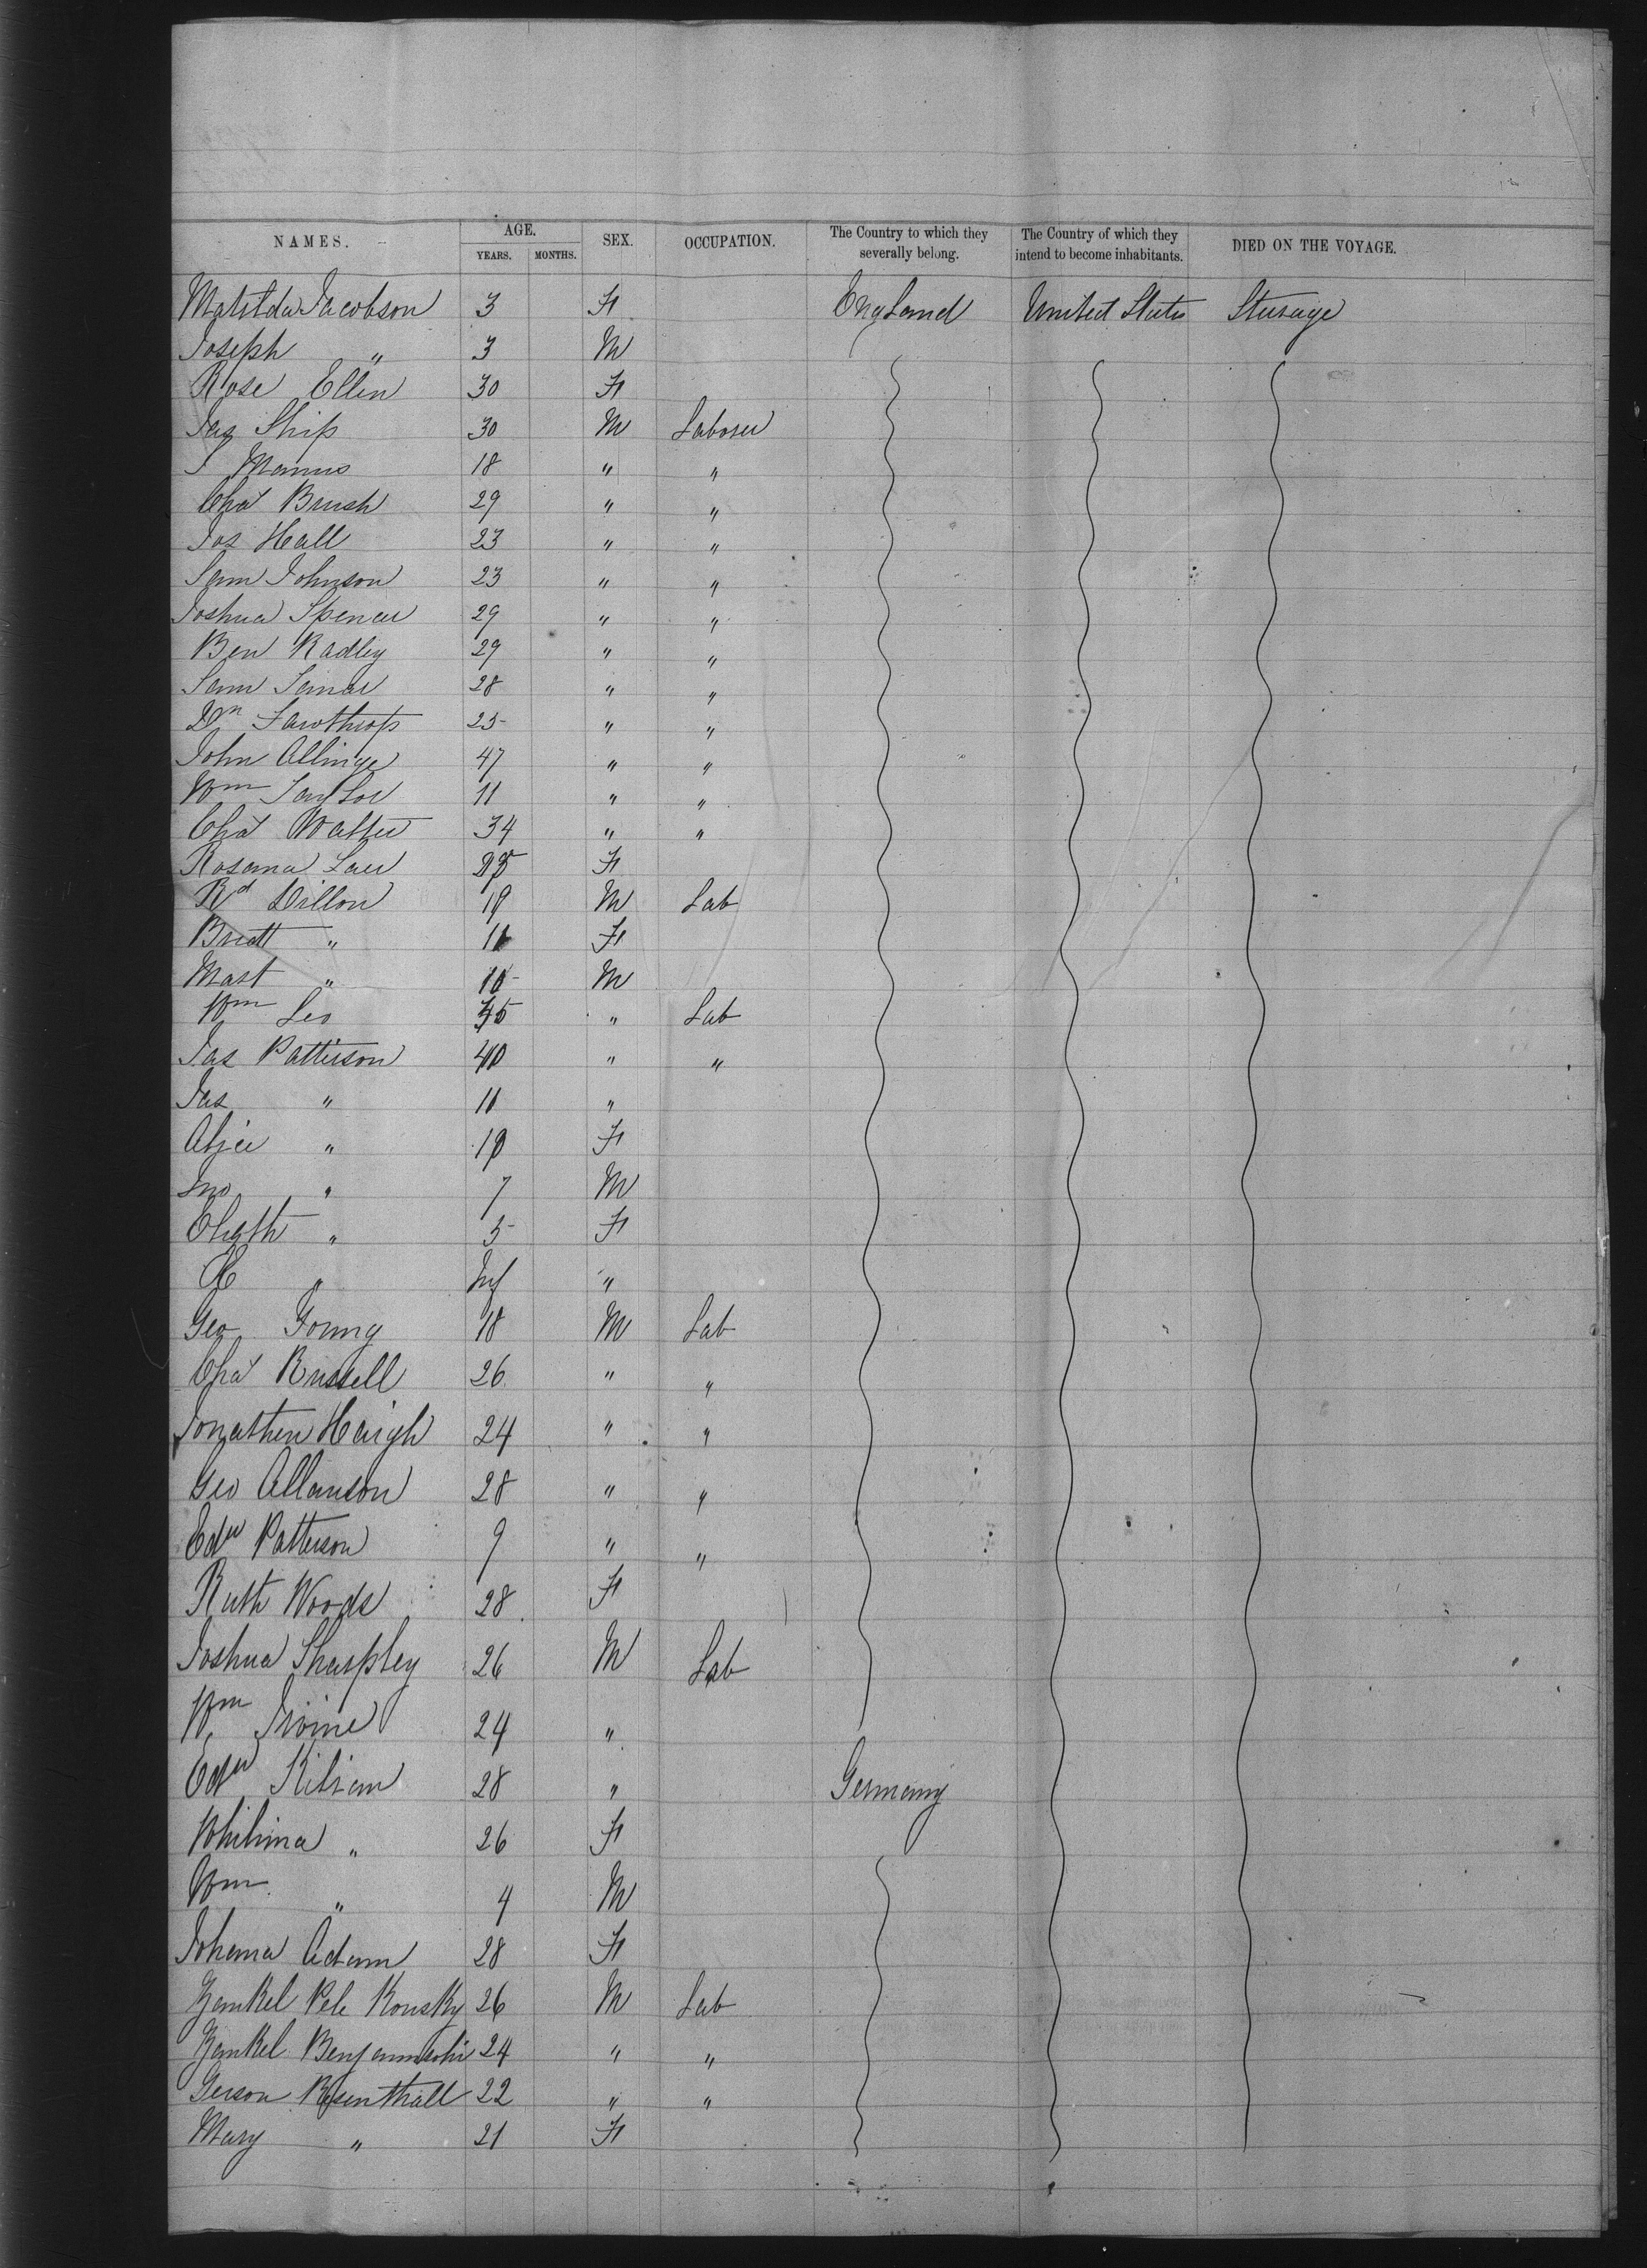 NAMES. AGE. SEX. OCCUPATION. The Country to which they severally belong. The Country of which they intend to become inhabitants. DIED ON THE VOYAGE.
YEARS. MONTHS.
Matilda Jacobson 3 F England United States Steerage
Joseph " 3 M
Rose Ellen 30 F
Jas Ship 30 M Laborer
J Manus 18 " "
Chas Brush 29 " "
Jos Hall 23 " "
Sam Johnson 23 " "
Joshua Spencer 29 " "
Ben Radley 29 " "
Sam 28 " "
Dn Fawthrop 25 " "
John Allinge 47 " "
Wm Taylor 11 " "
Chas Walter 34 " "
Rosanna F
Rd Dillon 19 M Lab
Bridt " 11 F
Mart " 10 M
Wm Leo 45 " Lab
Jas Patterson 40 " "
Jas " 11 "
Alice " 10 F
Jno " 7 M
Elizth " 5 F
" Inf "
Geo Young 18 M Lab
Chas Russell 26 " "
Jonathan Haigh 24 " "
Geo Allanson 28 " "
Edw Patterson 9 " "
Ruth Woods 28 F
Joshua Sharpley 26 M Lab
Wm Irvine 24 "
Edw Kilian 28 " Germany
Whilimina " 26 F
Wm " 4 M
Johana Adam 28 F
Yankel Pele Konsky 26 M Lab
Yankel Benjaminsohn 24 " "
Gerson Rosenthall 22 " "
Mary " 21 F